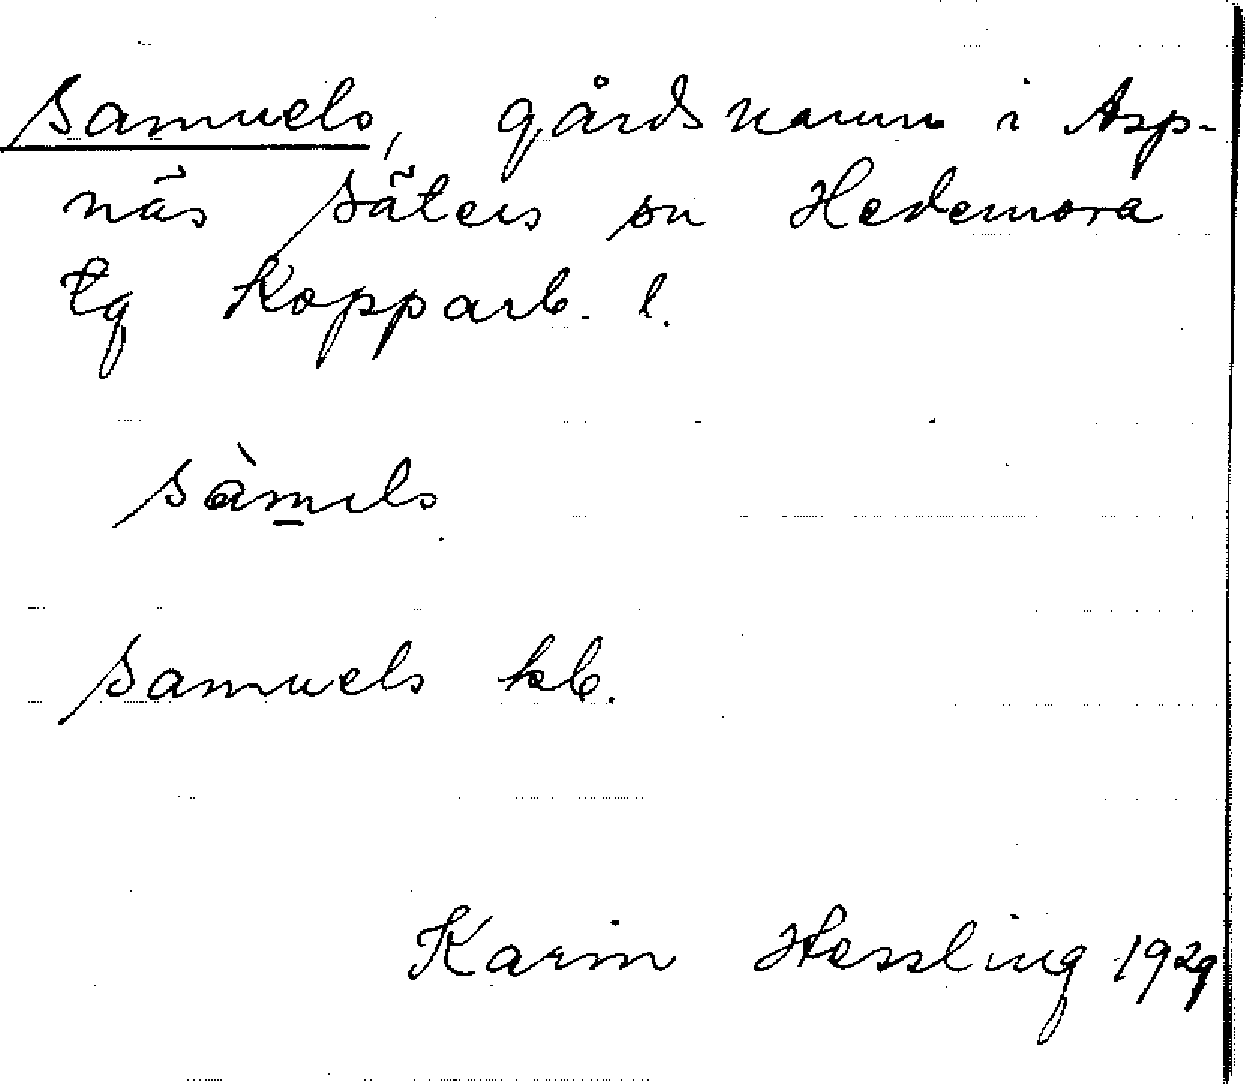 Samuels, gårdsnamn i Asp-
näs Säters sn Hedemora
tg Kopparb. l.
sàmels
Samuels kb.
Karin Hessling 1929